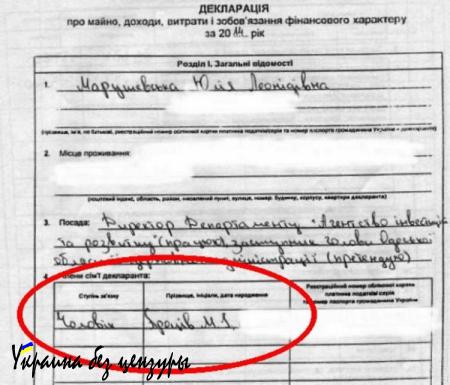 ДЕКЛАРАЦІЯ
про майно, доходи, витрати і зобов'язання фінансового характеру
за 2014 рік
Розділ I. Загальні відомості
1. Марушевська Юлія Леонідівна
(прізвище, ім'я, по батькові, реєстраційний номер облікової картки платника податків та номер паспорта громадянина України - декларанта)
2. Місце проживання:
(поштовий індекс, область, район, населений пункт, вулиця, номер будинку, корпусу, квартири декларанта)
3. Посада: Директор Департаменту "Агентство інвестицій
та розвитку" (працюю), заступник голови Одеської
обласної адміністрації (претендую)
4. Члени сім'ї декларанта:
Ступінь зв'язку
Прізвище, ініціали, дата народження
Реєстраційний номер облікової картки
платника податків/серія
номер паспорта громадянина України
Чоловік
Украина без цензуры